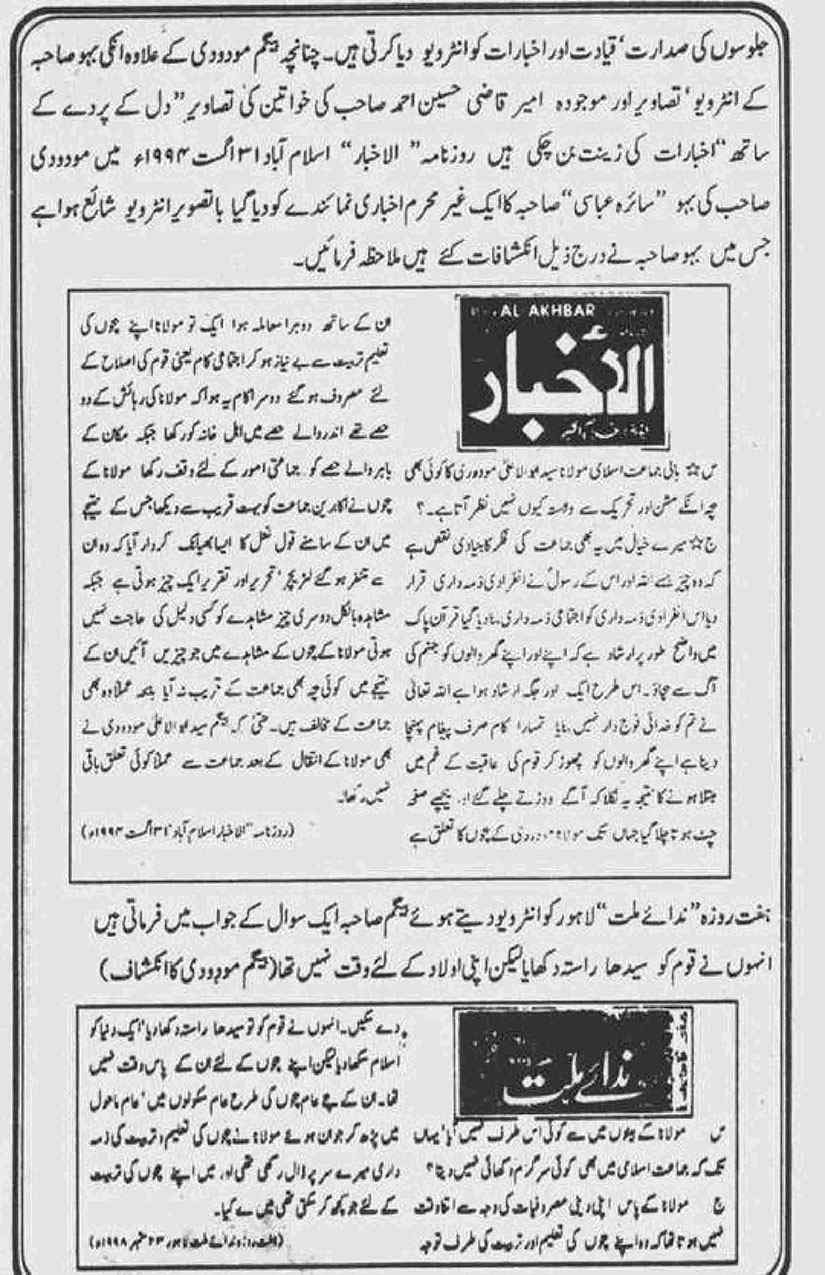 جلوسوں کی صدارت‘ قیادت اور اخبارات کو انٹرویو دیا کرتی ہیں۔ چنانچہ بیگم مودودی کے علاوہ انکی بہو صاحبہ
کے انٹرویو‘ تصاویر اور موجودہ امیر قاضی حسین احمد صاحب کی خواتین کی تصاویر ”دل کے پردے کے
ساتھ“ اخبارات کی زینت بن چکی ہیں روزنامہ ”الاخبار“ اسلام آباد ۳۱ اگست ۱۹۹۴ء میں مودودی
صاحب کی بہو ”سائرہ عباسی“ صاحبہ کا ایک غیر محرم اخباری نمائندے کو دیا گیا باتصویر انٹرویو شائع ہوا ہے
جس میں بہو صاحبہ نے درج ذیل انکشافات کئے ہیں ملاحظہ فرمائیں۔
AL AKHBAR
الاخبار
س☆ بانی جماعت اسلامی مولانا سید ابوالاعلیٰ مودودی کا کوئی بھی
چہ انکے مشن اور تحریک سے وابستہ کیوں نہیں نظر آتا ہے۔؟
ج☆ میرے خیال میں یہ بھی جماعت کی فکر کا بنیادی نقص ہے
کہ وہ چیز جسے اللہ اور اس کے رسولؐ نے انفرادی ذمہ داری قرار
دیا اس انفرادی ذمہ داری کو اجتماعی ذمہ داری بنا دیا گیا قرآن پاک
میں واضح طور پر ارشاد ہے کہ اپنے اور اپنے گھر والوں کو جہنم کی
آگ سے بچاؤ۔ اس طرح ایک اور جگہ ارشاد ہوا ہے اللہ تعالیٰ
نے تم کو خدائی فوج دار نہیں بنایا تمہارا کام صرف پیغام پہنچا
دینا ہے اپنے گھر والوں کو چھوڑ کر قوم کی عاقبت کے غم میں
مبتلا ہونے کا نتیجہ یہ نکلا کہ آگے دوڑتے چلے گئے اور پیچھے صفحہ
چٹ ہوتا چلا گیا جہاں تک مولانا مودودی کے چوں کا تعلق ہے
ان کے ساتھ دوہرا معاملہ ہوا ایک تو مولانا اپنے چوں کی
تعلیم تربیت سے بے نیاز ہو کر اجتماعی کام یعنی قوم کی اصلاح کے
لئے مصروف ہو گئے دوسرا کام یہ ہوا کہ مولانا کی رہائش کے دو
حصے تھے اندر والے حصے میں اہل خانہ کو رکھا جبکہ مکان کے
باہر والے حصے کو جماعتی امور کے لئے وقف رکھا مولانا کے
چوں نے اکابرین جماعت کو بہت قریب سے دیکھا جس کے نتیجے
میں ان کے سامنے قول فعل کا ایسا بھیانک کردار آیا کہ وہ ان
سے متنفر ہو گئے لٹریچر‘ تحریر اور تقریر ایک چیز ہوتی ہے جبکہ
مشاہدہ بالکل دوسری چیز مشاہدے کو کسی دلیل کی حاجت نہیں
ہوتی مولانا کے چوں کے مشاہدے میں جو چیزیں آئیں ان کے
نتیجے میں کوئی چہ بھی جماعت کے قریب نہ آیا بلکہ عملاً وہ بھی
جماعت کے مخالف ہیں۔ حتیٰ کہ بیگم سید ابوالاعلیٰ مودودی نے
بھی مولانا کے انتقال کے بعد جماعت سے عملاً کوئی تعلق باقی
نہیں رکھا۔
(روزنامہ ”الاخبار اسلام آباد‘ ۳۱ اگست ۱۹۹۴ء)
ہفت روزہ ”ندائے ملت“ لاہور کو انٹرویو دیتے ہوئے بیگم صاحبہ ایک سوال کے جواب میں فرماتی ہیں
انہوں نے قوم کو سیدھا راستہ دکھایا لیکن اپنی اولاد کے لئے وقت نہیں تھا (بیگم مودودی کا انکشاف)
ندائے ملت
س مولانا کے بیٹوں میں سے کوئی اس طرف نہیں آیا‘ یہاں
تک کہ جماعت اسلامی میں بھی کوئی سرگرم دکھائی نہیں دیتا؟
ج مولانا کے پاس اپنی دینی مصروفیات کی وجہ سے اتنا وقت
نہیں ہوتا تھا کہ وہ اپنے چوں کی تعلیم اور تربیت کی طرف توجہ
دے سکیں۔ انہوں نے قوم کو تو سیدھا راستہ دکھا دیا‘ ایک دنیا کو
اسلام سکھا دیا لیکن اپنے چوں کے لئے ان کے پاس وقت نہیں
تھا۔ ان کے چے عام چوں کی طرح عام سکولوں میں‘ عام ماحول
میں پڑھ کر جوان ہوئے مولانا نے چوں کی تعلیم و تربیت کی ذمہ
داری میرے سر پر ڈال رکھی تھی اور میں اپنے چوں کی تربیت
کے لئے جو کچھ کر سکتی تھی میں نے کیا۔
(ہفت روزہ ندائے ملت لاہور ۲۳ ستمبر ۱۹۹۸ء)